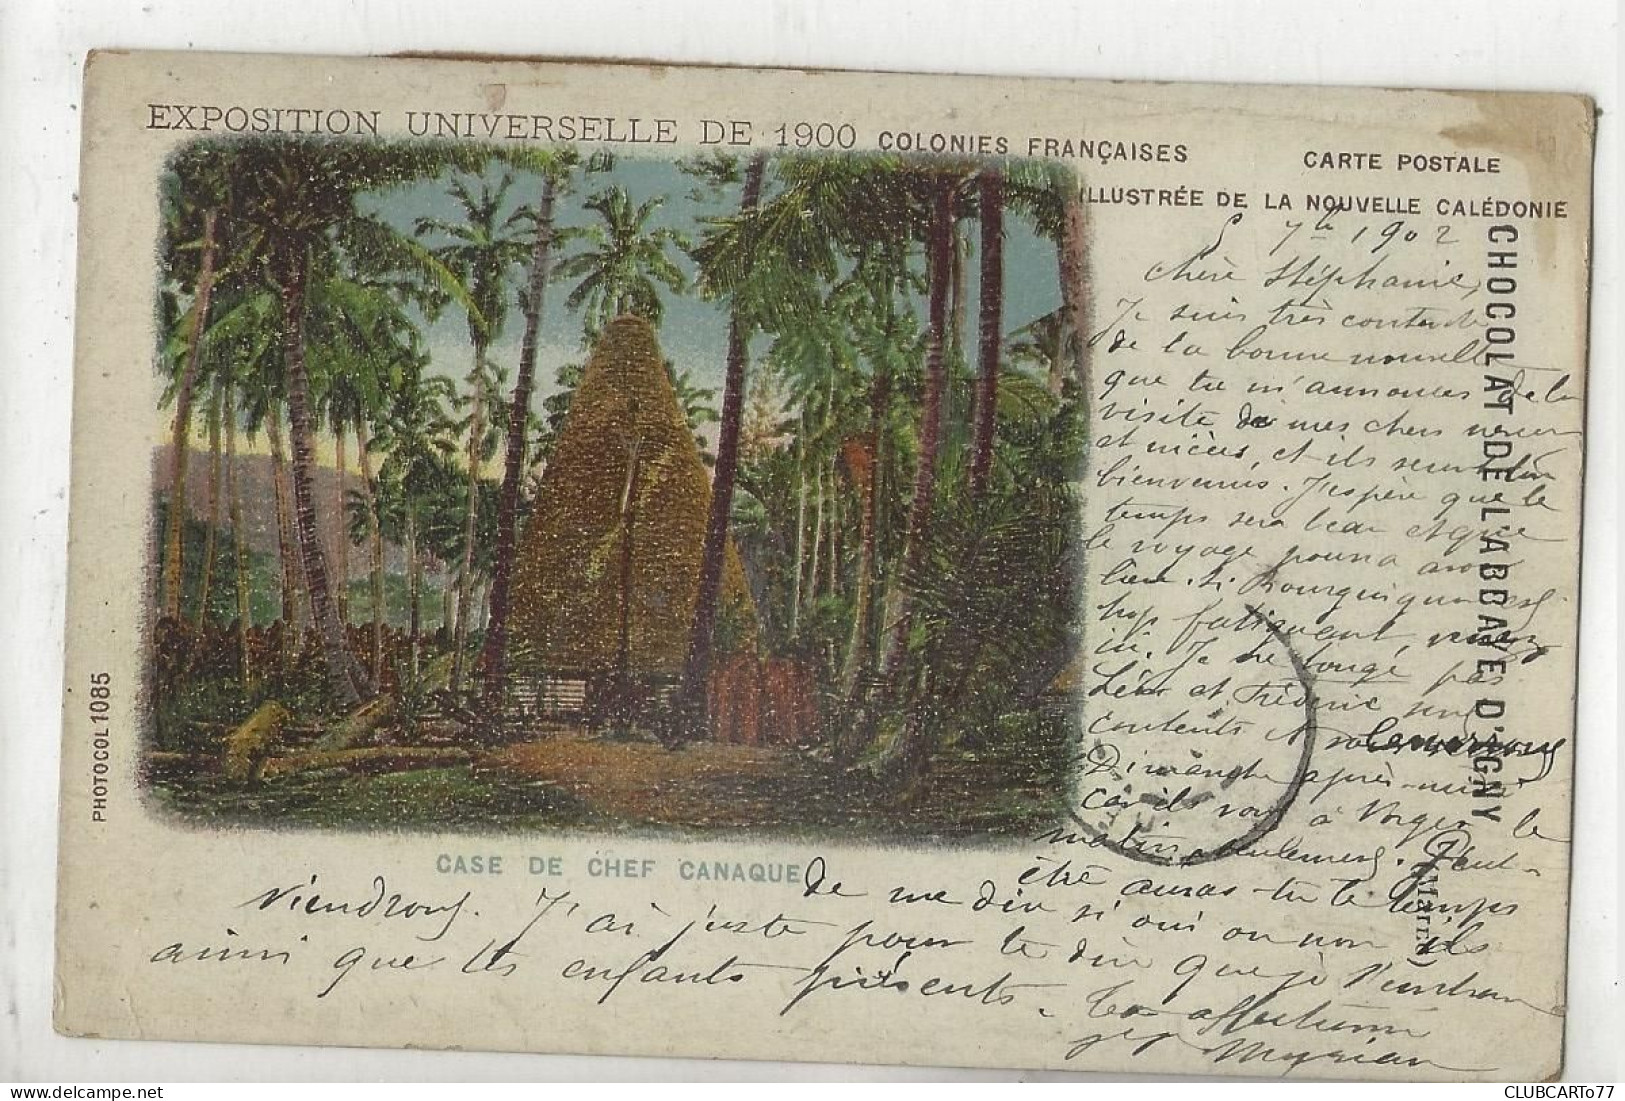 EXPOSITION UNIVERSELLE DE 1900 COLONIES FRANÇAISES
CARTE POSTALE
ILLUSTRÉE DE LA NOUVELLE CALÉDONIE
CHOCOLAT DE L'ABBAYE D'IGNY
(Marne)
PHOTOCOL 1085
CASE DE CHEF CANAQUE
7bre 1902
Chère Stéphanie,
Je suis très contente
de la bonne nouvelle
que tu m'annonces de la
visite de mes chers neveux
et nièces, et ils seront les
bienvenus. J'espère que le
temps sera beau et que
le voyage pourra avoir
lieu. Si
trop fatiguant, venez
ici. Je ne bougé pas
Léon et Frédéric sont
contents et
Dimanche après-midi
car ils vont à le
matin seulement. Peut-
être auras-tu le temps
de me dire si oui ou non ils
viendront. J'ai juste pour te dire que je
ainsi que les enfants présents. Ta affectionnée
Myriam
CLUBCARTO77